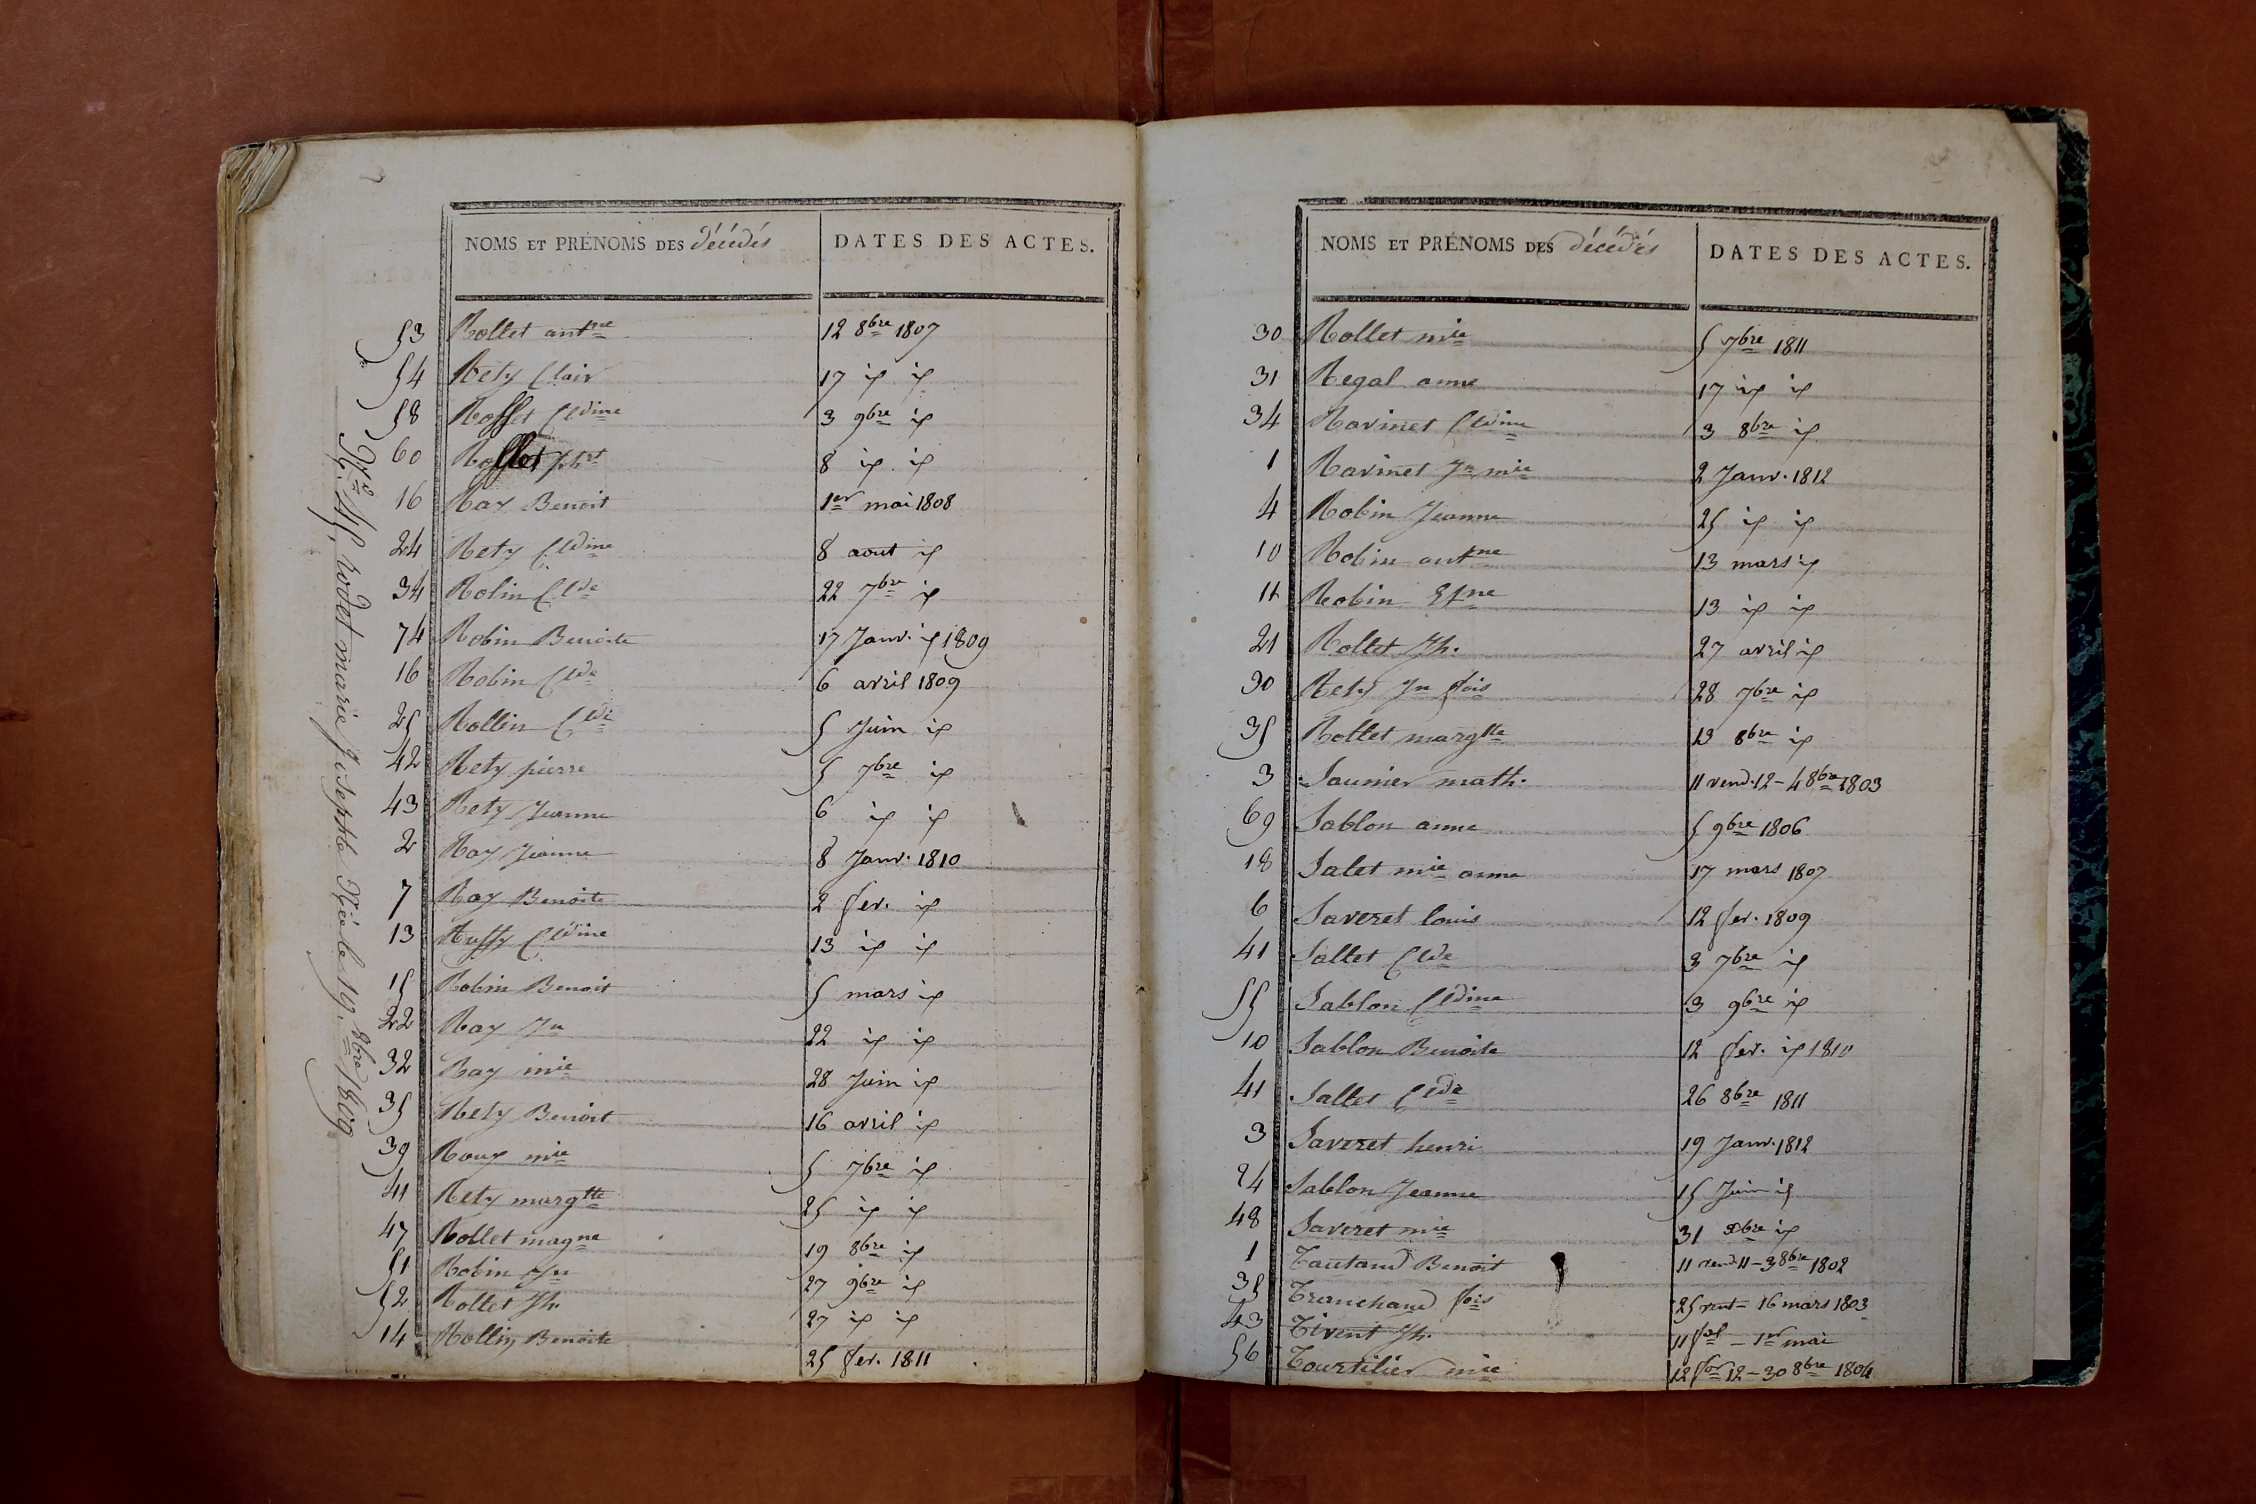 NOMS ET PRÉNOMS DES décédés DATES DES ACTES.
53 Rollet antne 12 8bre 1807
54 Rety Clair 17 id id
58 Rosset Cldine 3 9bre id
60 Rollet 8 id id
16 Ray Benoit 1er mai 1808
24 Rety Cldine 8 aout id
34 Rolin Clde 22 7bre id
74 Robin Benoite 17 Janv. id 1809
16 Robin Clde 6 avril 1809
25 Rollin Clde 5 Juin id
42 Rety pierre 5 7bre id
43 Rety Jeanne 6 id id
2 Ray Jeanne 8 Janv. 1810
7 Ray Benoite 2 fev. id
13 Ruffy Cldine 13 id id
15 Robin Benoit 5 mars id
22 Ray Jn 22 id id
32 Ray mie 28 Juin id
35 Rety Benoit 16 avril id
39 Roux mie 5 7bre id
41 Rety margtte 25 id id
47 Rollet magne 19 8bre id
51 Robin Jn 27 9bre id
52 Rollet Jh. 27 id id
14 Rollin Benoite 25 fev. 1811
No 45, rodet marie Josephte Née le 19. 8bre 1809
NOMS ET PRÉNOMS DES décédés DATES DES ACTES.
30 Rollet mie 5 7bre 1811
31 Regal anne 17 id id
34 Ravinet Cldine 3 8bre id
1 Ravinet Jn mie 2 Janv. 1812
4 Robin Jeanne 25 id id
10 Robin antne 13 mars id
11 Robin Etne 13 id id
21 Rollet Jh. 27 avril id
30 Rety Jn fois 28 7bre id
35 Rollet margtte 13 8bre id
3 Saunier math. 11 vend. 12 - 4 8bre 1803
69 Sablon anne 5 9bre 1806
18 Salet mie anne 17 mars 1807
6 Saveret louis 12 fev. 1809
41 Sallet Clde 3 7bre id
55 Sablon Cldine 3 9bre id
10 Sablon Benoite 12 fev. id 1810
41 Sallet Clde 26 8bre 1811
3 Saveret henri 19 Janv. 1812
24 Sablon Jeanne 15 Juin id
48 Saveret mie 31 xbre id
1 Tautaud Benoit 11 vend 11 - 3 8bre 1802
35 Tranchand fois 25 vent - 16 mars 1803
43 Tivent Jh. 11 fal - 1er mai
56 Tourtilier mie 12 - 30 8bre 1804